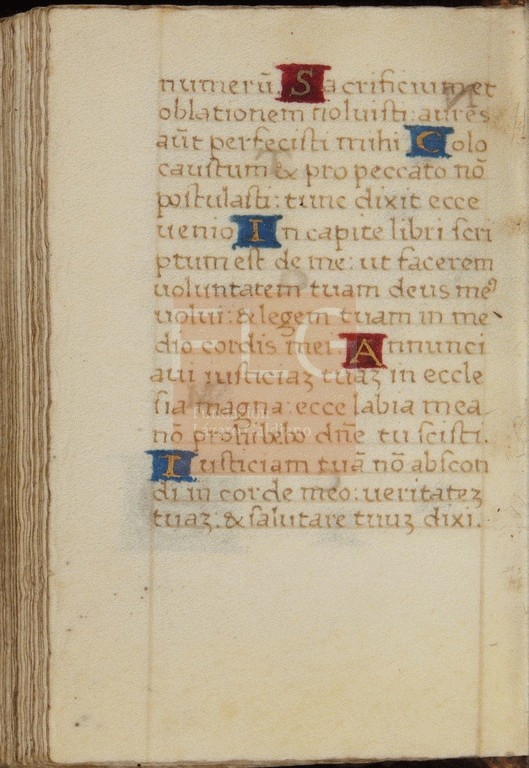 numerū. Sacrificium et
oblationem noluisti: aures
aūt perfecisti mihi Colo
caustum & pro peccato nō
postulasti: tunc dixit ecce
uenio In capite libri scri
ptum est de me: ut facerem
voluntatem tuam deus meꝰ
uolui: & legem tuam in me
dio cordis mei. Annunci
aui iusticiaʒ tuaʒ in eccle
sia magna: ecce labia mea
nō prohibebo dn̄e tu scisti.
Iusticiam tuā nō abscon
di in corde meo: ueritateʒ
tuaʒ. & salutare tuuʒ dixi.
FLG
Fundación
Lázaro Galdiano